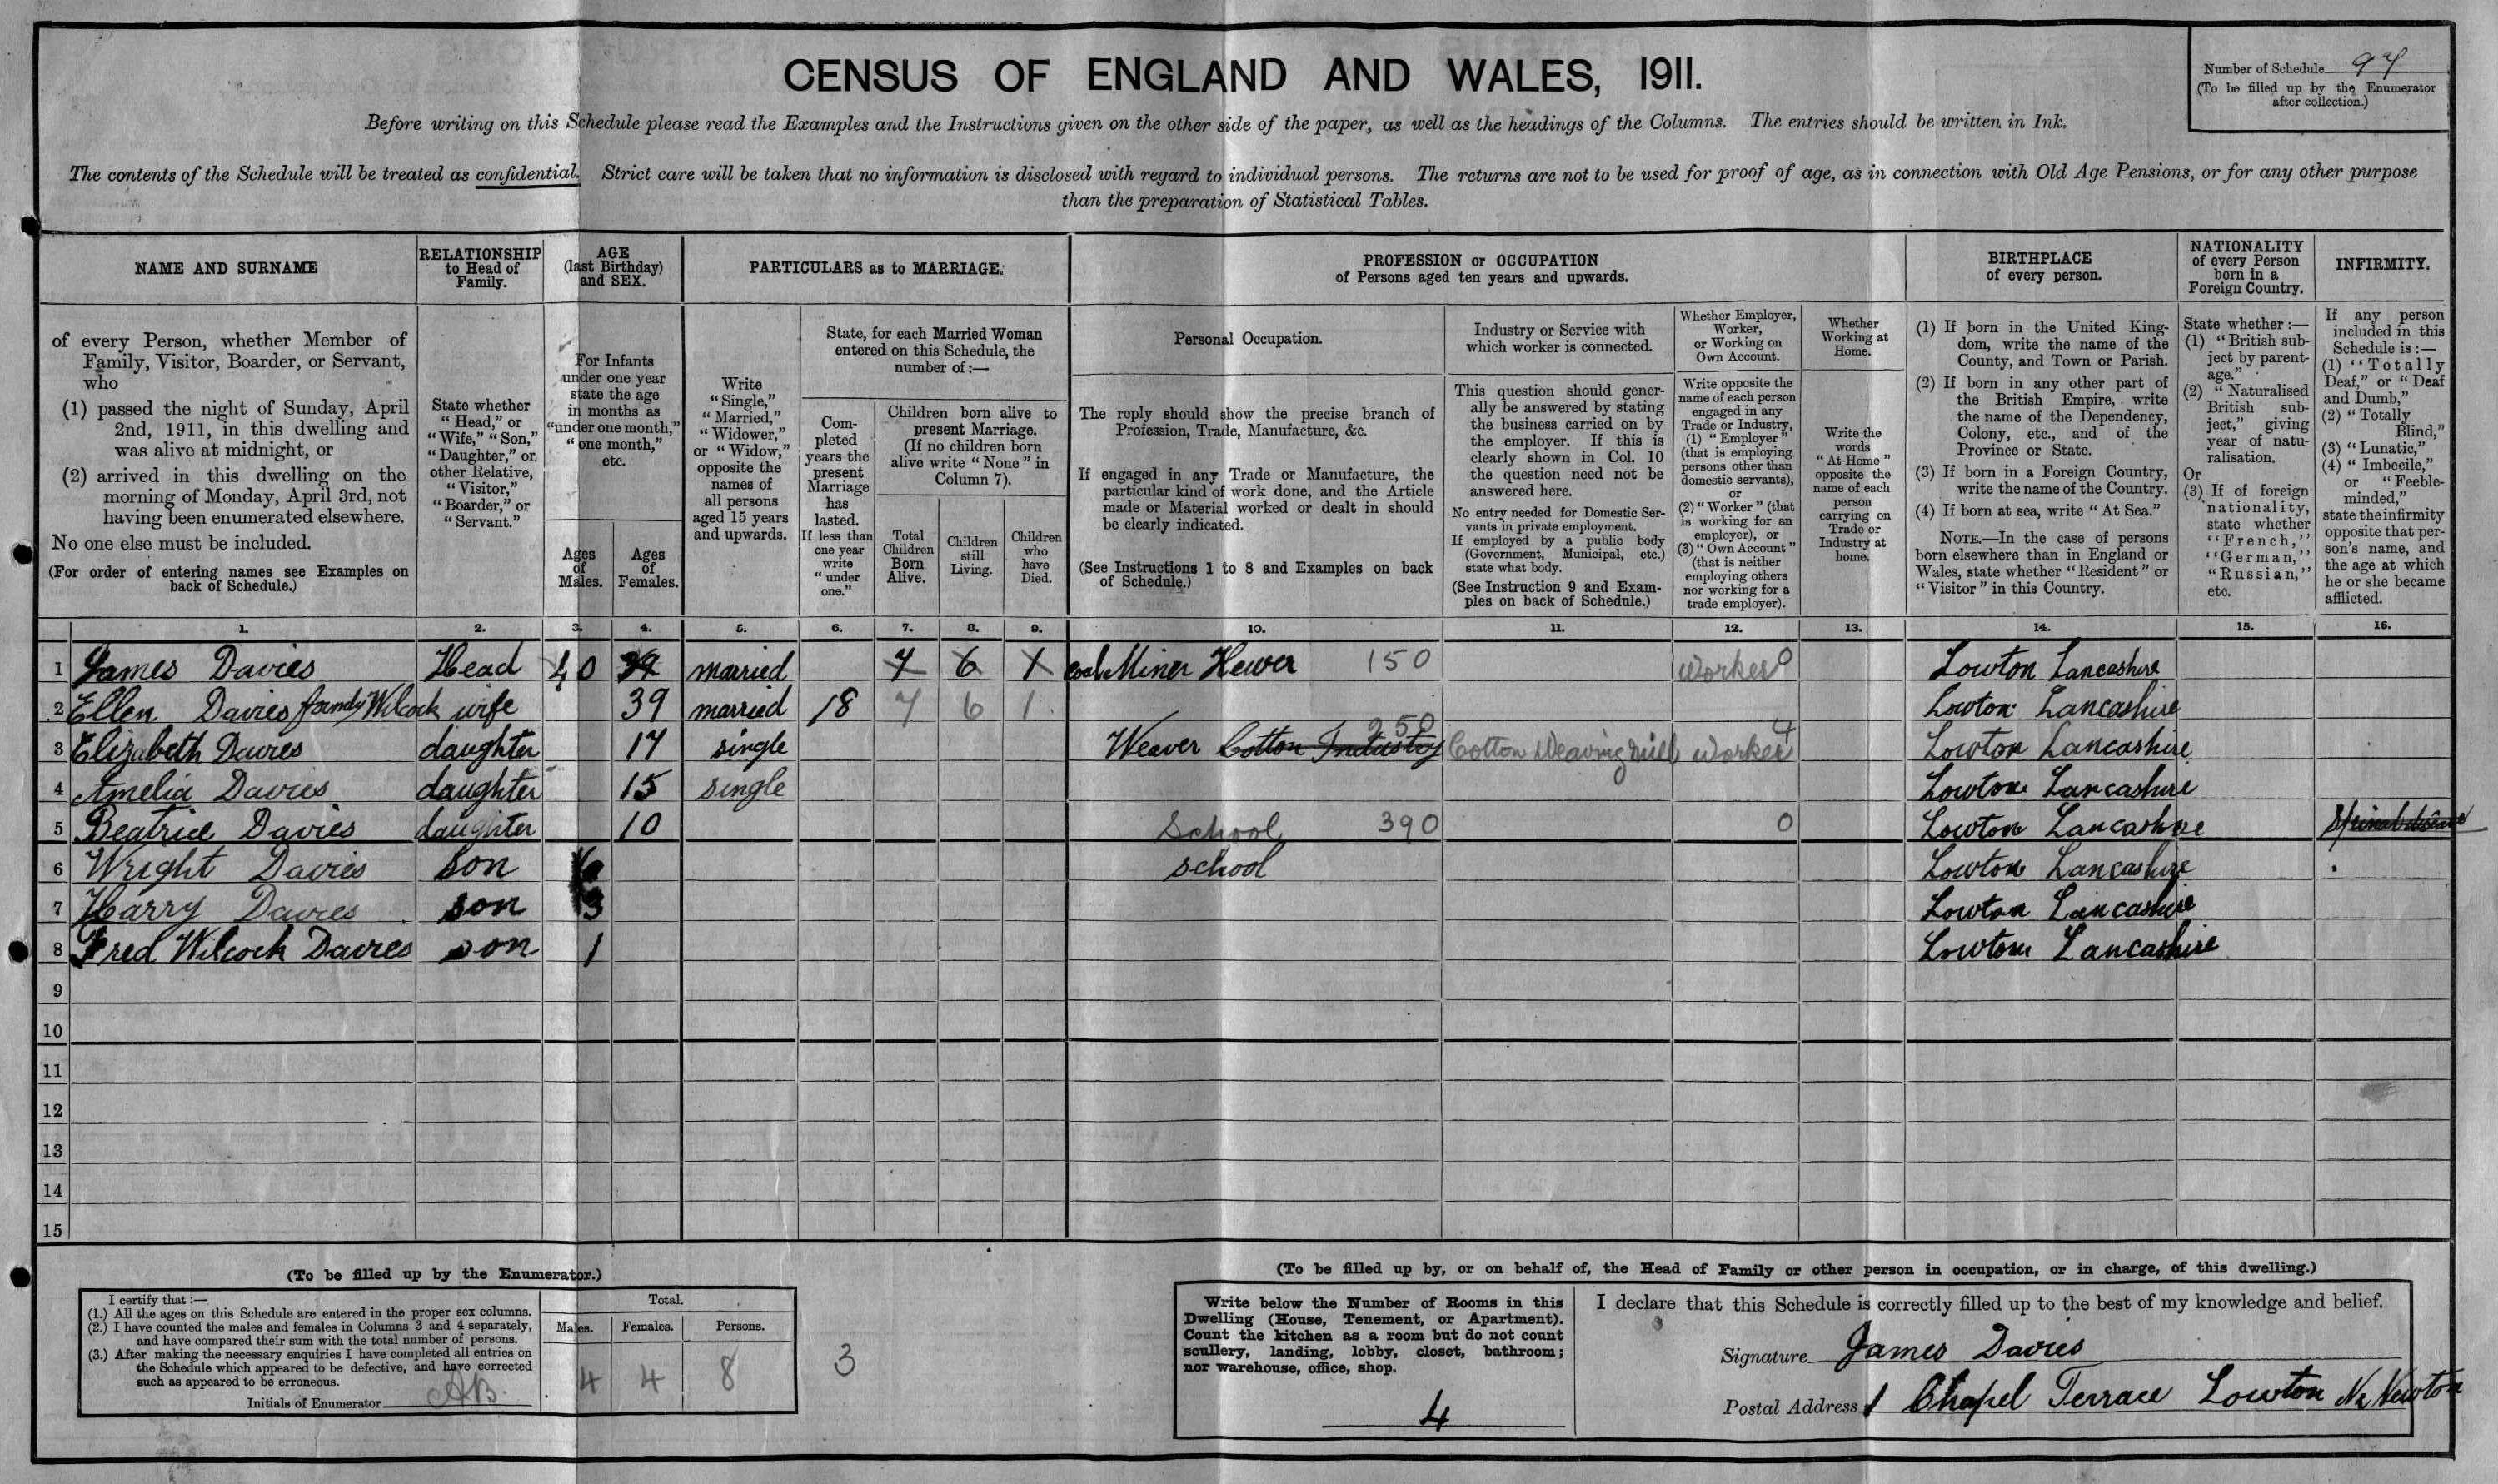 CENSUS OF ENGLAND AND WALES, 1911.
Number of Schedule 94
(To be filled up by the Enumerator
after collection.)
Before writing on this Schedule please read the Examples and the Instructions given on the other side of the paper, as well as the headings of the Columns. The entries should be written in Ink.
The contents of the Schedule will be treated as confidential. Strict care will be taken that no information is disclosed with regard to individual persons. The returns are not to be used for proof of age, as in connection with Old Age Pensions, or for any other purpose
than the preparation of Statistical Tables.
NAME AND SURNAME
of every Person, whether Member of
Family, Visitor, Boarder, or Servant,
who
(1) passed the night of Sunday, April
2nd, 1911, in this dwelling and
was alive at midnight, or
(2) arrived in this dwelling on the
morning of Monday, April 3rd, not
having been enumerated elsewhere.
No one else must be included.
(For order of entering names see Examples on
back of Schedule.)
RELATIONSHIP
to Head of
Family.
State whether
"Head," or
"Wife," "Son,"
"Daughter," or
other Relative,
"Visitor,"
"Boarder," or
"Servant."
AGE
(last Birthday)
and SEX.
For Infants
under one year
state the age
in months as
"under one month,"
"one month,"
etc.
Ages
of
Males.
Ages
of
Females.
PARTICULARS as to MARRIAGE.
Write
"Single,"
"Married,"
"Widower,"
or "Widow,"
opposite the
names of
all persons
aged 15 years
and upwards.
State, for each Married Woman
entered on this Schedule, the
number of:—
Com-
pleted
years the
present
Marriage
has
lasted.
If less than
one year
write
"under
one."
Children born alive to
present Marriage.
(If no children born
alive write "None" in
Column 7).
Total
Children
Born
Alive.
Children
still
Living.
Children
who
have
Died.
PROFESSION or OCCUPATION
of Persons aged ten years and upwards.
Personal Occupation.
The reply should show the precise branch of
Profession, Trade, Manufacture, &c.
If engaged in any Trade or Manufacture, the
particular kind of work done, and the Article
made or Material worked or dealt in should
be clearly indicated.
(See Instructions 1 to 8 and Examples on back
of Schedule.)
Industry or Service with
which worker is connected.
This question should gener-
ally be answered by stating
the business carried on by
the employer. If this is
clearly shown in Col. 10
the question need not be
answered here.
No entry needed for Domestic Ser-
vants in private employment.
If employed by a public body
(Government, Municipal, etc.)
state what body.
(See Instruction 9 and Exam-
ples on back of Schedule.)
Whether Employer,
Worker,
or Working on
Own Account.
Write opposite the
name of each person
engaged in any
Trade or Industry,
(1) "Employer"
(that is employing
persons other than
domestic servants),
or
(2) "Worker" (that
is working for an
employer), or
(3) "Own Account"
(that is neither
employing others
nor working for a
trade employer).
Whether
Working at
Home.
Write the
words
"At Home"
opposite the
name of each
person
carrying on
Trade or
Industry at
home.
BIRTHPLACE
of every person.
(1) If born in the United King-
dom, write the name of the
County, and Town or Parish.
(2) If born in any other part of
the British Empire, write
the name of the Dependency,
Colony, etc., and of the
Province or State.
(3) If born in a Foreign Country,
write the name of the Country.
(4) If born at sea, write "At Sea."
NOTE.—In the case of persons
born elsewhere than in England or
Wales, state whether "Resident" or
"Visitor" in this Country.
NATIONALITY
of every Person
born in a
Foreign Country.
State whether :—
(1) "British sub-
ject by parent-
age."
(2) "Naturalised
British sub-
ject," giving
year of natu-
ralisation.
Or
(3) If of foreign
nationality,
state whether
"French,"
"German,"
"Russian,"
etc.
INFIRMITY.
If any person
included in this
Schedule is :—
(1) "Totally
Deaf," or "Deaf
and Dumb,"
(2) "Totally
Blind,"
(3) "Lunatic,"
(4) "Imbecile,"
or "Feeble-
minded,"
state the infirmity
opposite that per-
son's name, and
the age at which
he or she became
afflicted.
1. 2. 3. 4. 5. 6. 7. 8. 9. 10. 11. 12. 13. 14. 15. 16.
1 James Davies Head 40 39 married 7 6 1 Coal Miner Hewer 150 Worker 0 Lowton Lancashire
2 Ellen Davies formerly Wilcock wife 39 married 18 7 6 1 Lowton Lancashire
3 Elizabeth Davies daughter 17 single Weaver Cotton Industry 250 Cotton Weaving Mill Worker 4 Lowton Lancashire
4 Amelia Davies daughter 15 single Lowton Lancashire
5 Beatrice Davies daughter 10 School 390 0 Lowton Lancashire Spinal disease
6 Wright Davies son 6 school Lowton Lancashire
7 Harry Davies son 3 Lowton Lancashire
8 Fred Wilcock Davies son 1 Lowton Lancashire
9
10
11
12
13
14
15
(To be filled up by the Enumerator.)
I certify that :—
(1.) All the ages on this Schedule are entered in the proper sex columns.
(2.) I have counted the males and females in Columns 3 and 4 separately,
and have compared their sum with the total number of persons.
(3.) After making the necessary enquiries I have completed all entries on
the Schedule which appeared to be defective, and have corrected
such as appeared to be erroneous.
Initials of Enumerator AB.
Total.
Males. Females. Persons.
4 4 8
3
(To be filled up by, or on behalf of, the Head of Family or other person in occupation, or in charge, of this dwelling.)
Write below the Number of Rooms in this
Dwelling (House, Tenement, or Apartment).
Count the kitchen as a room but do not count
scullery, landing, lobby, closet, bathroom;
nor warehouse, office, shop.
4
I declare that this Schedule is correctly filled up to the best of my knowledge and belief.
Signature James Davies
Postal Address 1 Chapel Terrace Lowton Nr Newton